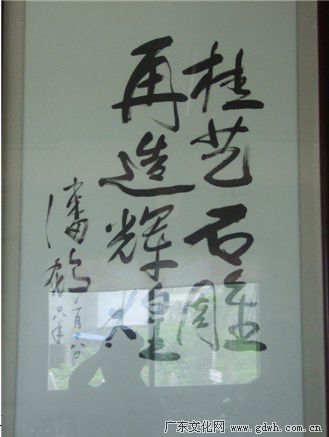 桂艺石雕
再造辉煌
潘鹤
广东文化网
www.gdwh.com.cn